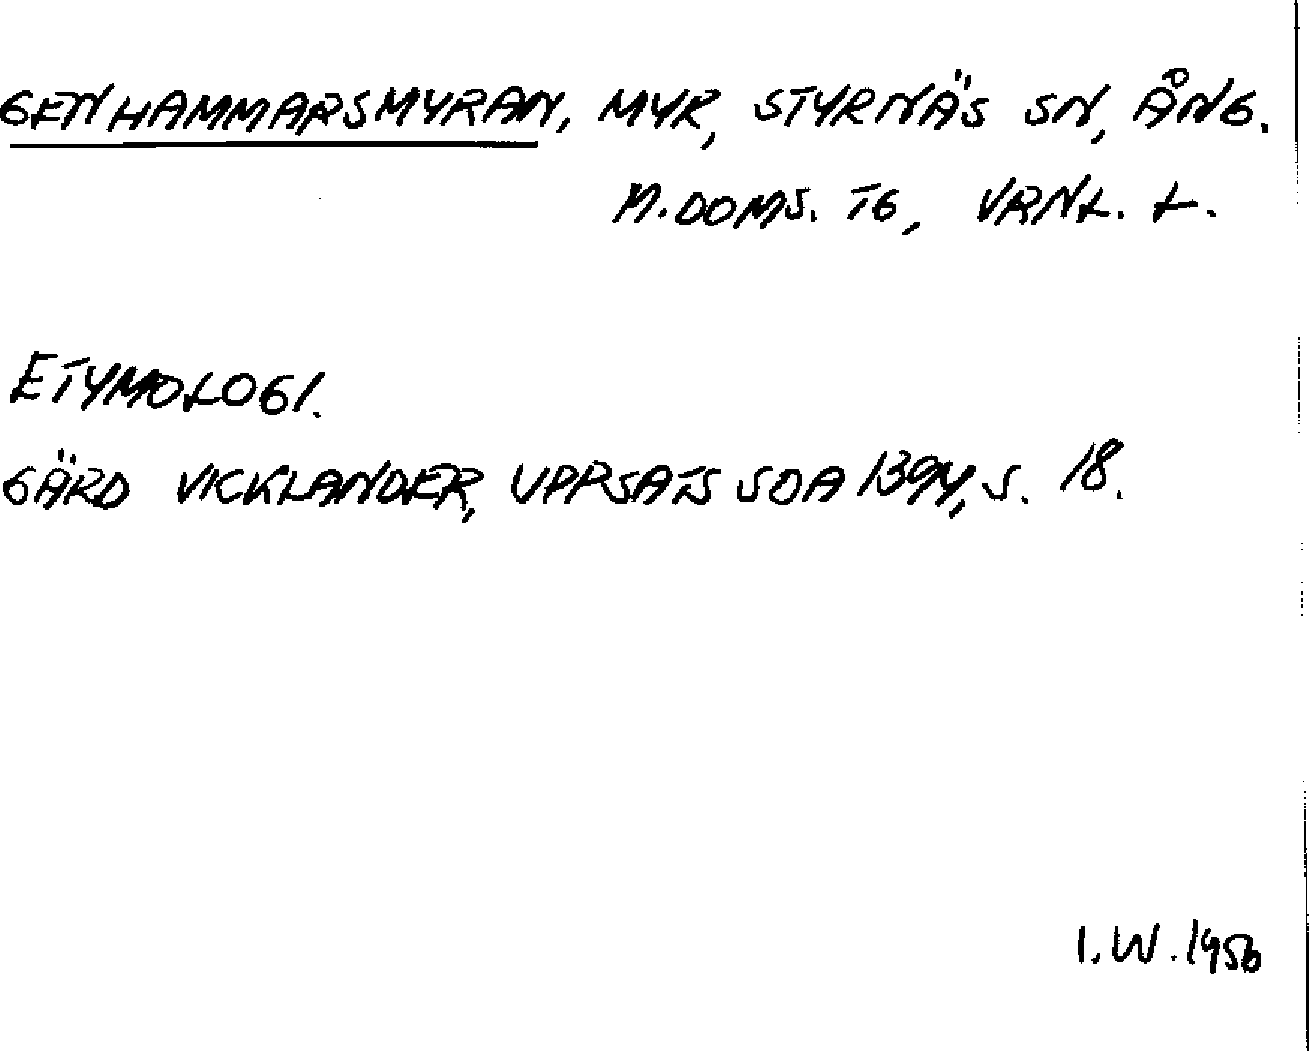 GENHAMMARSMYRAN, MYR, STYRNÄS SN, ÅNG.
M. DOMS. TG, VRNL. L.
ETYMOLOGI.
GÄRD VICKLANDER, UPPSATS SOA 1394, S. 18.
I. W. 1956